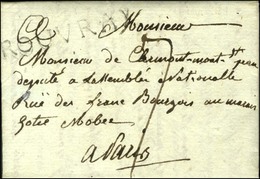 ROUVRAY
Monsieur
Monsieur de Clermont-mont-St jean
deputé a Lassemblée Nationalle
Ruë des franc Bourgois au marais
hotre Mobec
a Paris
7